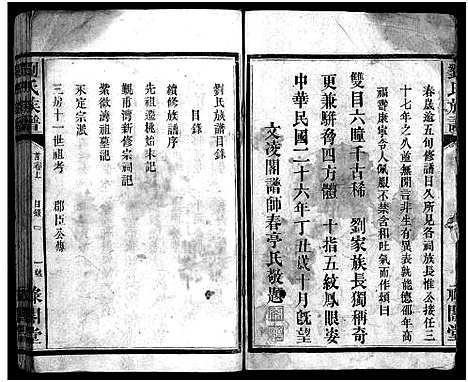 劉氏族譜
春歲逾五旬修譜日久所見各祠族長惟公接任三
十七年之八並無閒言非生有異表孰能德卲年高
福壽康寧令人佩覩不禁含和吐氣而作頌曰
雙目六瞳千古稀　劉家族長獨稱奇
更兼駢脅四方體　十指五紋鳳眼姿
中華民國二十六年丁丑歲十月既望
文凌閣譜師春亭氏敬題
祿閣堂
劉氏族譜目錄
目錄
續修族譜序
先祖遷桃始末記
觀市灣新修宗祠記
紫微灣祖墓記
永定宗派
三房十一世祖考　郡臣公傳
劉氏族譜
首卷上　目錄
一號
祿閣堂